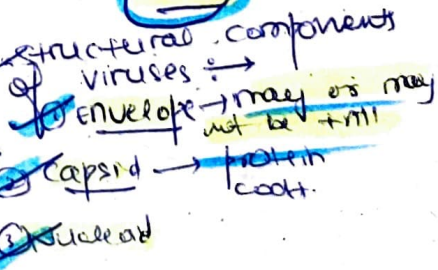 structural components
of viruses :→
① Envelope → may or may
not be
② Capsid → protein
coat.
③